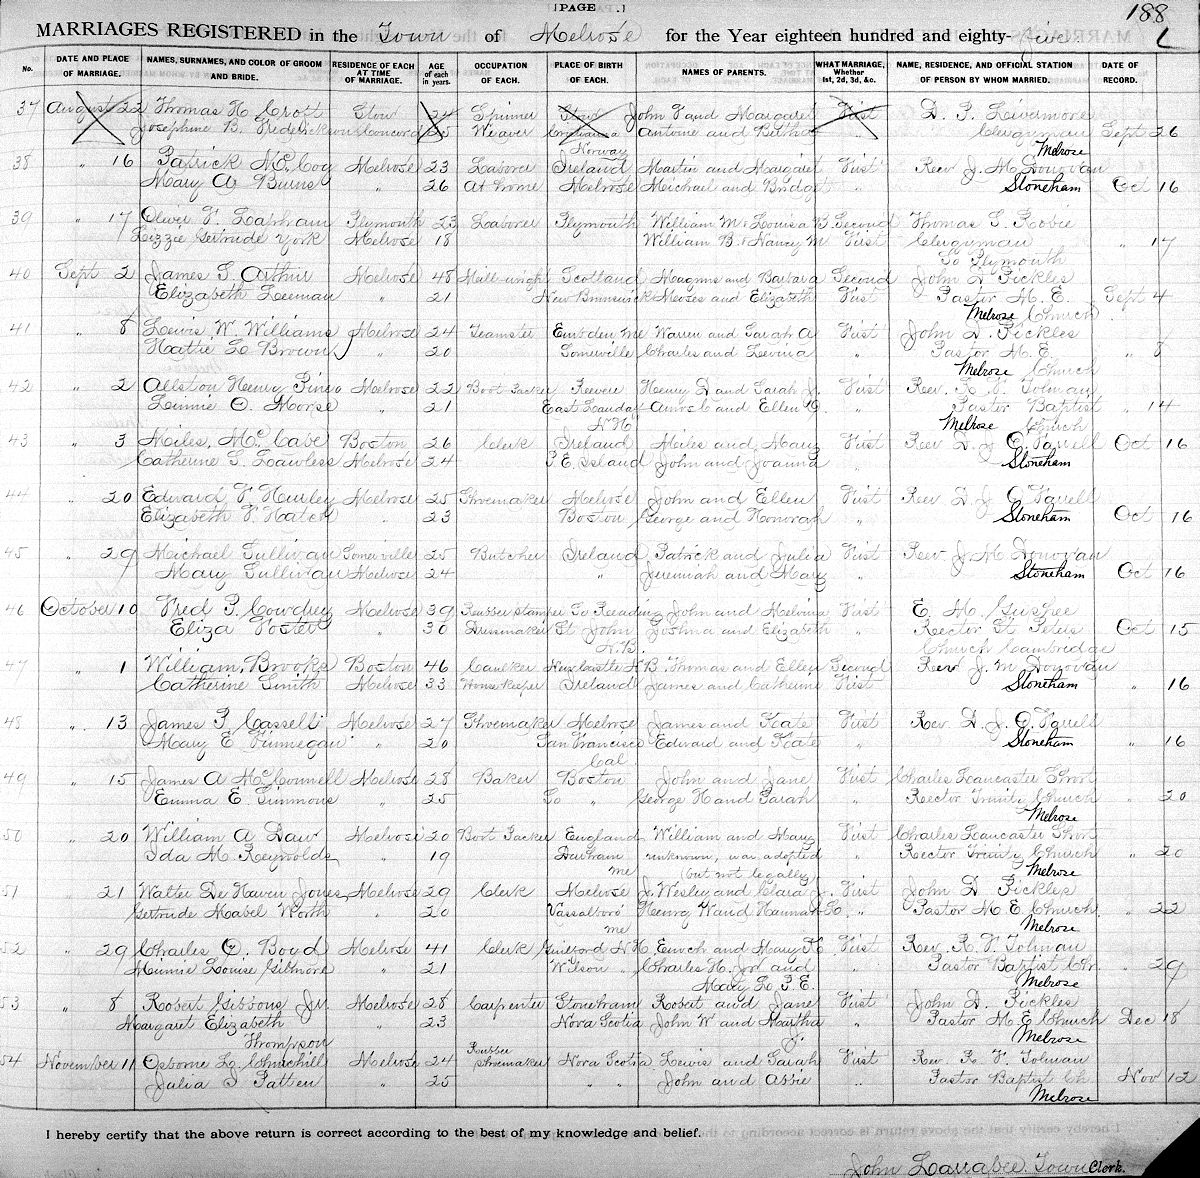 [PAGE .]
188
MARRIAGES REGISTERED in the Town of Melrose for the Year eighteen hundred and eighty-five
No. DATE AND PLACE OF MARRIAGE. NAMES, SURNAMES, AND COLOR OF GROOM AND BRIDE. RESIDENCE OF EACH AT TIME OF MARRIAGE. AGE of each in years. OCCUPATION OF EACH. PLACE OF BIRTH OF EACH. NAMES OF PARENTS. WHAT MARRIAGE, Whether 1st, 2d, 3d, &c. NAME, RESIDENCE, AND OFFICIAL STATION OF PERSON BY WHOM MARRIED. DATE OF RECORD.
37 August 22 Thomas H. Croft Stow 24 Spinner Stow John T and Margaret First D. P. Livermore
Josephine B. Frederickson Concord 25 Weaver Christiana Antoine and Bertha Clergyman Sept 26
Norway Melrose
38 " 16 Patrick McCoy Melrose 23 Laborer Ireland Martin and Margaret First Rev J. M. Donovan
Mary A Burns " 26 At home Melrose Michael and Bridget " Stoneham Oct 16
39 " 17 Oliver F. Lapham Plymouth 23 Laborer Plymouth William M & Louisa B. Second Thomas S. Robie
Lizzie Gertrude York Melrose 18 William B. & Nancy M First Clergyman " 17
So Plymouth
40 Sept 2 James S. Arthur Melrose 48 Millwright Scotland Magnus and Barbara Second John D Pickles
Elizabeth Leeman " 21 New Brunswick Moses and Elizabeth First Pastor M. E. Sept 4
Melrose Church
41 " 8 Lewis W. Williams Melrose 24 Teamster Embden Me Warren and Sarah A First John D. Pickles
Hattie L. Brown " 20 Somerville Charles and Levina " Pastor M. E. " 8
Melrose Church
42 " 2 Allston Henry Pineo Melrose 22 Boot Packer Revere Henry D and Sarah J. First Rev. R. F. Tolman
Linnie O. Morse " 21 East Landaff Amos C and Ellen O. Pastor Baptist " 14
N H Melrose Church
43 " 3 Miles McCabe Boston 26 Clerk Ireland Miles and Mary First Rev D. J. O Farrell Oct 16
Catherine G. Lawless Melrose 24 P. E. Island John and Joanna " Stoneham
44 " 20 Edward F Hurley Melrose 25 Shoemaker Melrose John and Ellen First Rev D. J O Farrell
Elizabeth F. Hatch " 23 Boston George and Honorah " Stoneham Oct 16
45 " 29 Michael Sullivan Somerville 25 Butcher Ireland Patrick and Julia First Rev J. M Donovan
Mary Sullivan Melrose 24 " Jeremiah and Mary " Stoneham Oct 16
46 October 10 Fred P. Cowdrey Melrose 39 Rubber Stamper So Reading John and Melvina First E. M. Gushee
Eliza Foster " 30 Dressmaker St John Joshua and Elizabeth " Rector St Peters Oct 15
N. B. Church Cambridge
47 " 1 William Brooks Boston 46 Caulker New Castle N B. Thomas and Ellen Second Rev J. M Donovan
Catherine Smith Melrose 33 Housekeeper Ireland James and Catherine First Stoneham " 16
48 " 13 James F. Casselli Melrose 27 Shoemaker Melrose James and Kate First Rev. D. J. O Farrell
Mary E. Finnegan " 20 San Francisco Edward and Kate " Stoneham " 16
Cal
49 " 15 James A McConnell Melrose 28 Baker Boston John and Jane First Charles Lancaster Short
Emma E. Simmons " 25 So " George H and Sarah " Rector Trinity Church " 20
Melrose
50 " 20 William A Daw Melrose 20 Boot Packer England William and Mary First Charles Lancaster Short
Ida M. Reynolds " 19 Durham unknown, was adopted " Rector Trinity Church " 20
me (but not legally) Melrose
51 " 21 Walter De Haven Jones Melrose 29 Clerk Melrose J. Wesley and Clara J. First John D Pickles
Gertrude Mabel Worth " 20 Vassalboro Henry W and Hannah C. " Pastor M E Church " 22
me Melrose
52 " 29 Charles O. Boyd Melrose 41 Clerk Guilford N H. Enoch and Mary K First Rev. R. F. Tolman
Minnie Louise Gilmore " 21 Wilson " Charles H. Jr and " Pastor Baptist Ch. " 29
Mary L. P. E. Melrose
53 " 8 Robert Gibbons Jr. Melrose 28 Carpenter Stoneham Robert and Jane First John D. Pickles
Margaret Elizabeth " 23 Nova Scotia John W and Martha " Pastor M. E Church Dec 18
Thompson J. Melrose
54 November 11 Osborne L. Churchill Melrose 24 Rubber Shoemaker Nova Scotia Lewis and Sarah First Rev. R. F. Tolman
Julia S Patten " 25 " " John and Abbie " Pastor Baptist Ch Nov 12
Melrose
I hereby certify that the above return is correct according to the best of my knowledge and belief.
John Larrabee. Town Clerk.